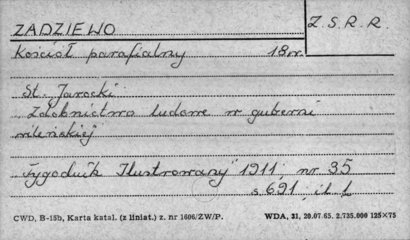 ZADZIEWO
Z.S.R.R.
Kościół parafialny 18w.
St. Jarocki
"Zdobnictwo ludowe w guberni
wileńskiej
"Tygodnik Ilustrowany" 1911, nr 35
s 691, il. 1
CWD, B-15b, Karta katal. (z liniat.) z. nr 1606/ZW/P. WDA, 31, 20.07.65. 2.735.000 125×75